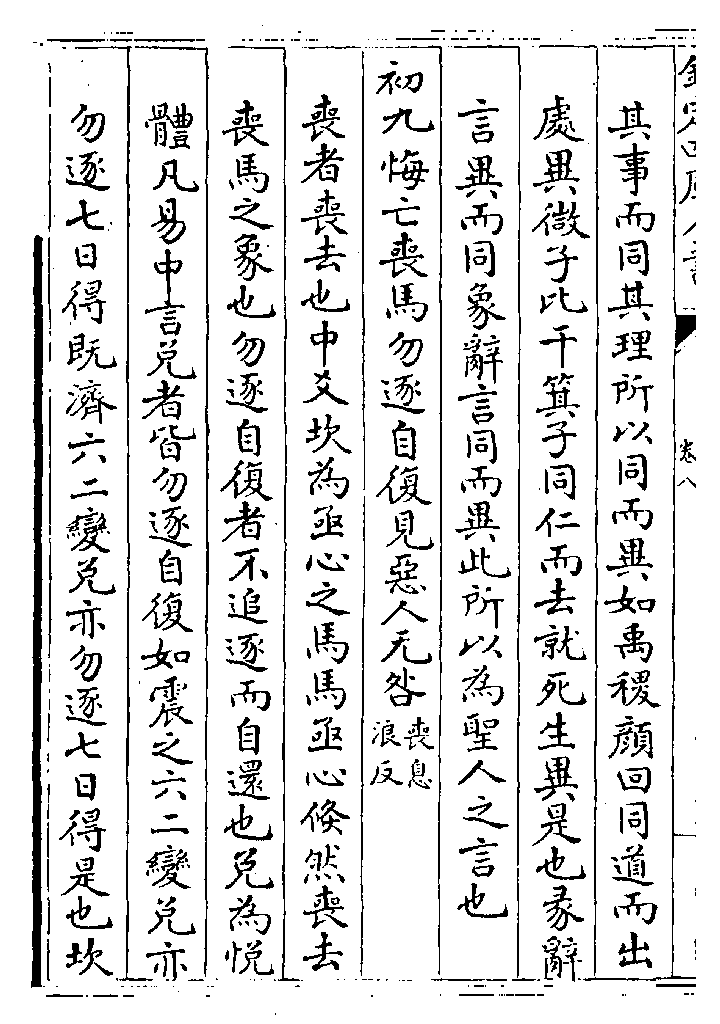 欽定四庫全書
卷八
其事而同其理所以同而異如禹稷顔回同道而出
處異微子比干箕子同仁而去就死生異是也彖辭
言異而同象辭言同而異此所以為聖人之言也
初九悔亡喪馬勿逐自復見惡人无咎喪息浪反
喪者喪去也中爻坎為亟心之馬馬亟心倐然喪去
喪馬之象也勿逐自復者不追逐而自還也兑為悦
體凡易中言兑者皆勿逐自復如震之六二變兑亦
勿逐七日得既濟六二變兑亦勿逐七日得是也坎